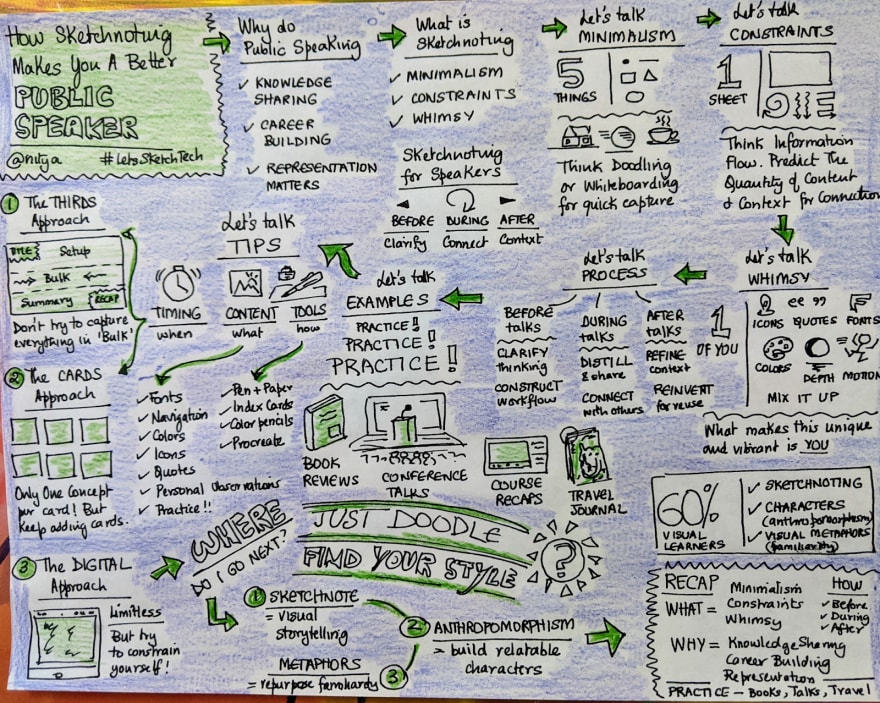 How Sketchnoting
Makes You A Better
PUBLIC
SPEAKER
@nitya #LetsSketchTech
Why do
Public Speaking
✓ KNOWLEDGE
SHARING
✓ CAREER
BUILDING
✓ REPRESENTATION
MATTERS
What is
Sketchnoting
✓ MINIMALISM
✓ CONSTRAINTS
✓ WHIMSY
Let's talk
MINIMALISM
5
THINGS
Think Doodling
or Whiteboarding
for quick capture
Let's talk
CONSTRAINTS
1
SHEET
Think Information
Flow. Predict The
Quantity of Content
& Context for Connection
Let's talk
WHIMSY
1
OF YOU
ICONS
ee 99
QUOTES
FONTS
COLORS
DEPTH
MOTION
MIX IT UP
What makes this unique
and vibrant is YOU
Let's talk
PROCESS
Before
talks
CLARIFY
thinking
CONSTRUCT
workflow
DURING
talks
DISTILL
& share
CONNECT
with others
AFTER
talks
REFINE
context
REINVENT
for reuse
Sketchnoting
for Speakers
BEFORE DURING AFTER
Clarify Connect Context
Let's talk
EXAMPLES
PRACTICE!
PRACTICE!
PRACTICE!
BOOK
REVIEWS
CONFERENCE
TALKS
COURSE
RECAPS
TRAVEL
JOURNAL
Let's talk
TIPS
TIMING
when
CONTENT
what
TOOLS
how
✓ Fonts
✓ Navigation
✓ Colors
✓ Icons
✓ Quotes
✓ Personal Observations
✓ Practice!!
✓ Pen + Paper
✓ Index Cards
✓ Color pencils
✓ Procreate
1 The THIRDS
Approach
TITLE Setup
Bulk
Summary RECAP
Don't try to capture
everything in 'Bulk'
2 The CARDS
Approach
Only One Concept
per card! But
Keep adding cards.
3 The DIGITAL
Approach
Limitless
But try
to constrain
yourself!
WHERE
DO I GO NEXT?
JUST DOODLE
FIND YOUR STYLE
?
1 SKETCHNOTE
= visual
storytelling
2 ANTHROPOMORPHISM
= build relatable
characters
METAPHORS 3
= repurpose familiarity
60%
VISUAL
LEARNERS
✓ SKETCHNOTING
✓ CHARACTERS
(anthropomorphism)
✓ VISUAL METAPHORS
(familiarity)
RECAP
WHAT = Minimalism
Constraints
Whimsy
HOW
✓ Before
✓ During
✓ After
WHY = Knowledge Sharing
Career Building
Representation
PRACTICE – Books, Talks, Travel